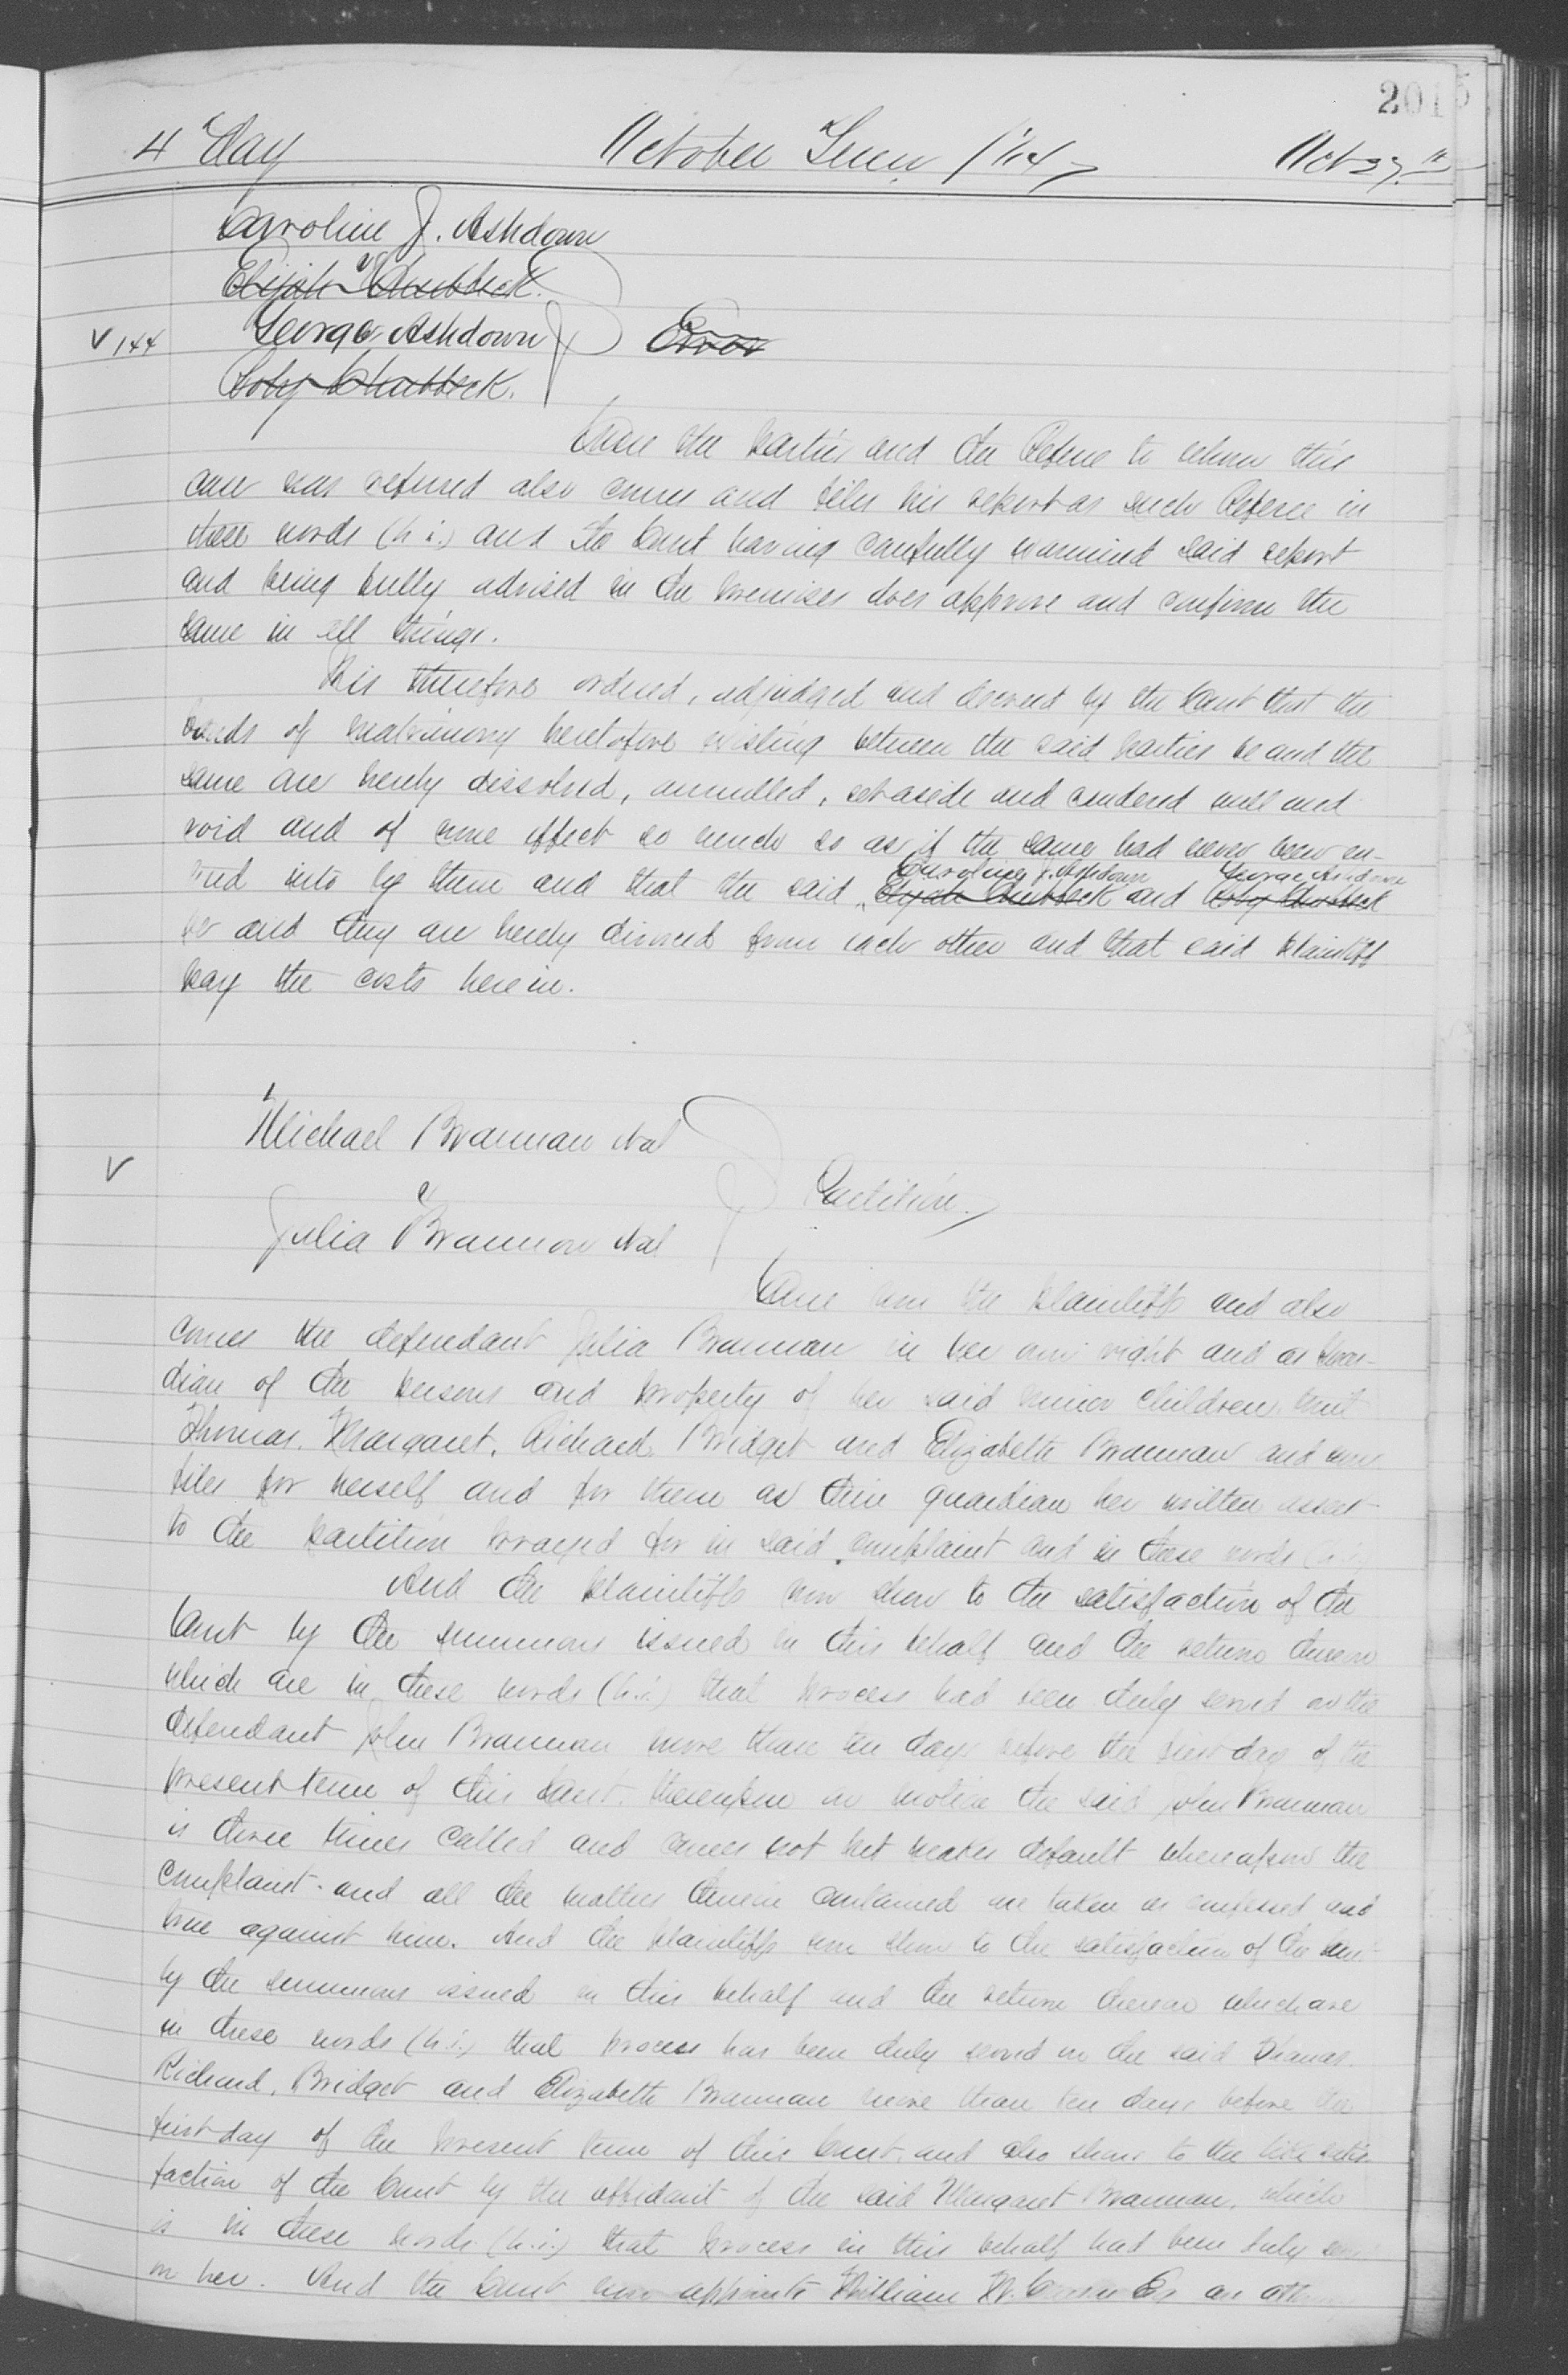 201
4 Day October Term 1874 Oct 27th
Caroline J. Ashdown
v
Elijah Chubbuck.
V 144 George Ashdown Error
Toby Chubbuck.
Came the parties and the Referee to whom this
cause was referred also comes and files his report as such Referee in
these words (h.i.) and the Court having carefully examined said report
and being fully advised in the premises does approve and confirm the
same in all things.
It is therefore ordered, adjudged and decreed by the Court that the
bonds of matrimony heretofore existing between the said parties be and the
same are hereby dissolved, annulled, set aside and rendered null and
void and of none effect so much so as if the same had never been en-
Caroline J. Ashdown George Ashdown
tered into by them and that the said Elijah Chubbuck and Toby Chubbuck
be and they are hereby divorced from each other and that said plaintiff
pay the costs herein.
Michael Brannan et al
V v Partition
Julia Brannan et al
Come now the plaintiffs and also
comes the defendant Julia Brannan in her own right and as Guar-
dian of the persons and property of her said minor children, to wit
Thomas, Margaret, Richard, Bridget and Elizabeth Brannan and now
files for herself and for them as their guardian her written assent
to the partition prayed for in said complaint and in these words (h.i.)
And the plaintiffs now show to the satisfaction of the
Court by the summons issued in this behalf and the return thereon
which are in these words (h.i.) that process had been duly served on the
defendant John Brannan more than ten days before the first day of the
present term of this Court. thereupon on motion the said John Brannan
is three times called and comes not but makes default whereupon the
complaint and all the matters therein contained are taken as confessed and
true against him. And the plaintiffs now show to the satisfaction of the Court
by the summons issued in this behalf and the return thereon which are
in these words (h.i.) that process has been duly served on the said Thomas.
Richard, Bridget and Elizabeth Brannan more than ten days before the
first day of the present term of this Court, and also shows to the like satis
faction of the Court by the affidavit of the said Margaret Brannan, which
is in these words (h.i.) that process in this behalf had been duly
on her. And the Court now appoints William W. Esq an